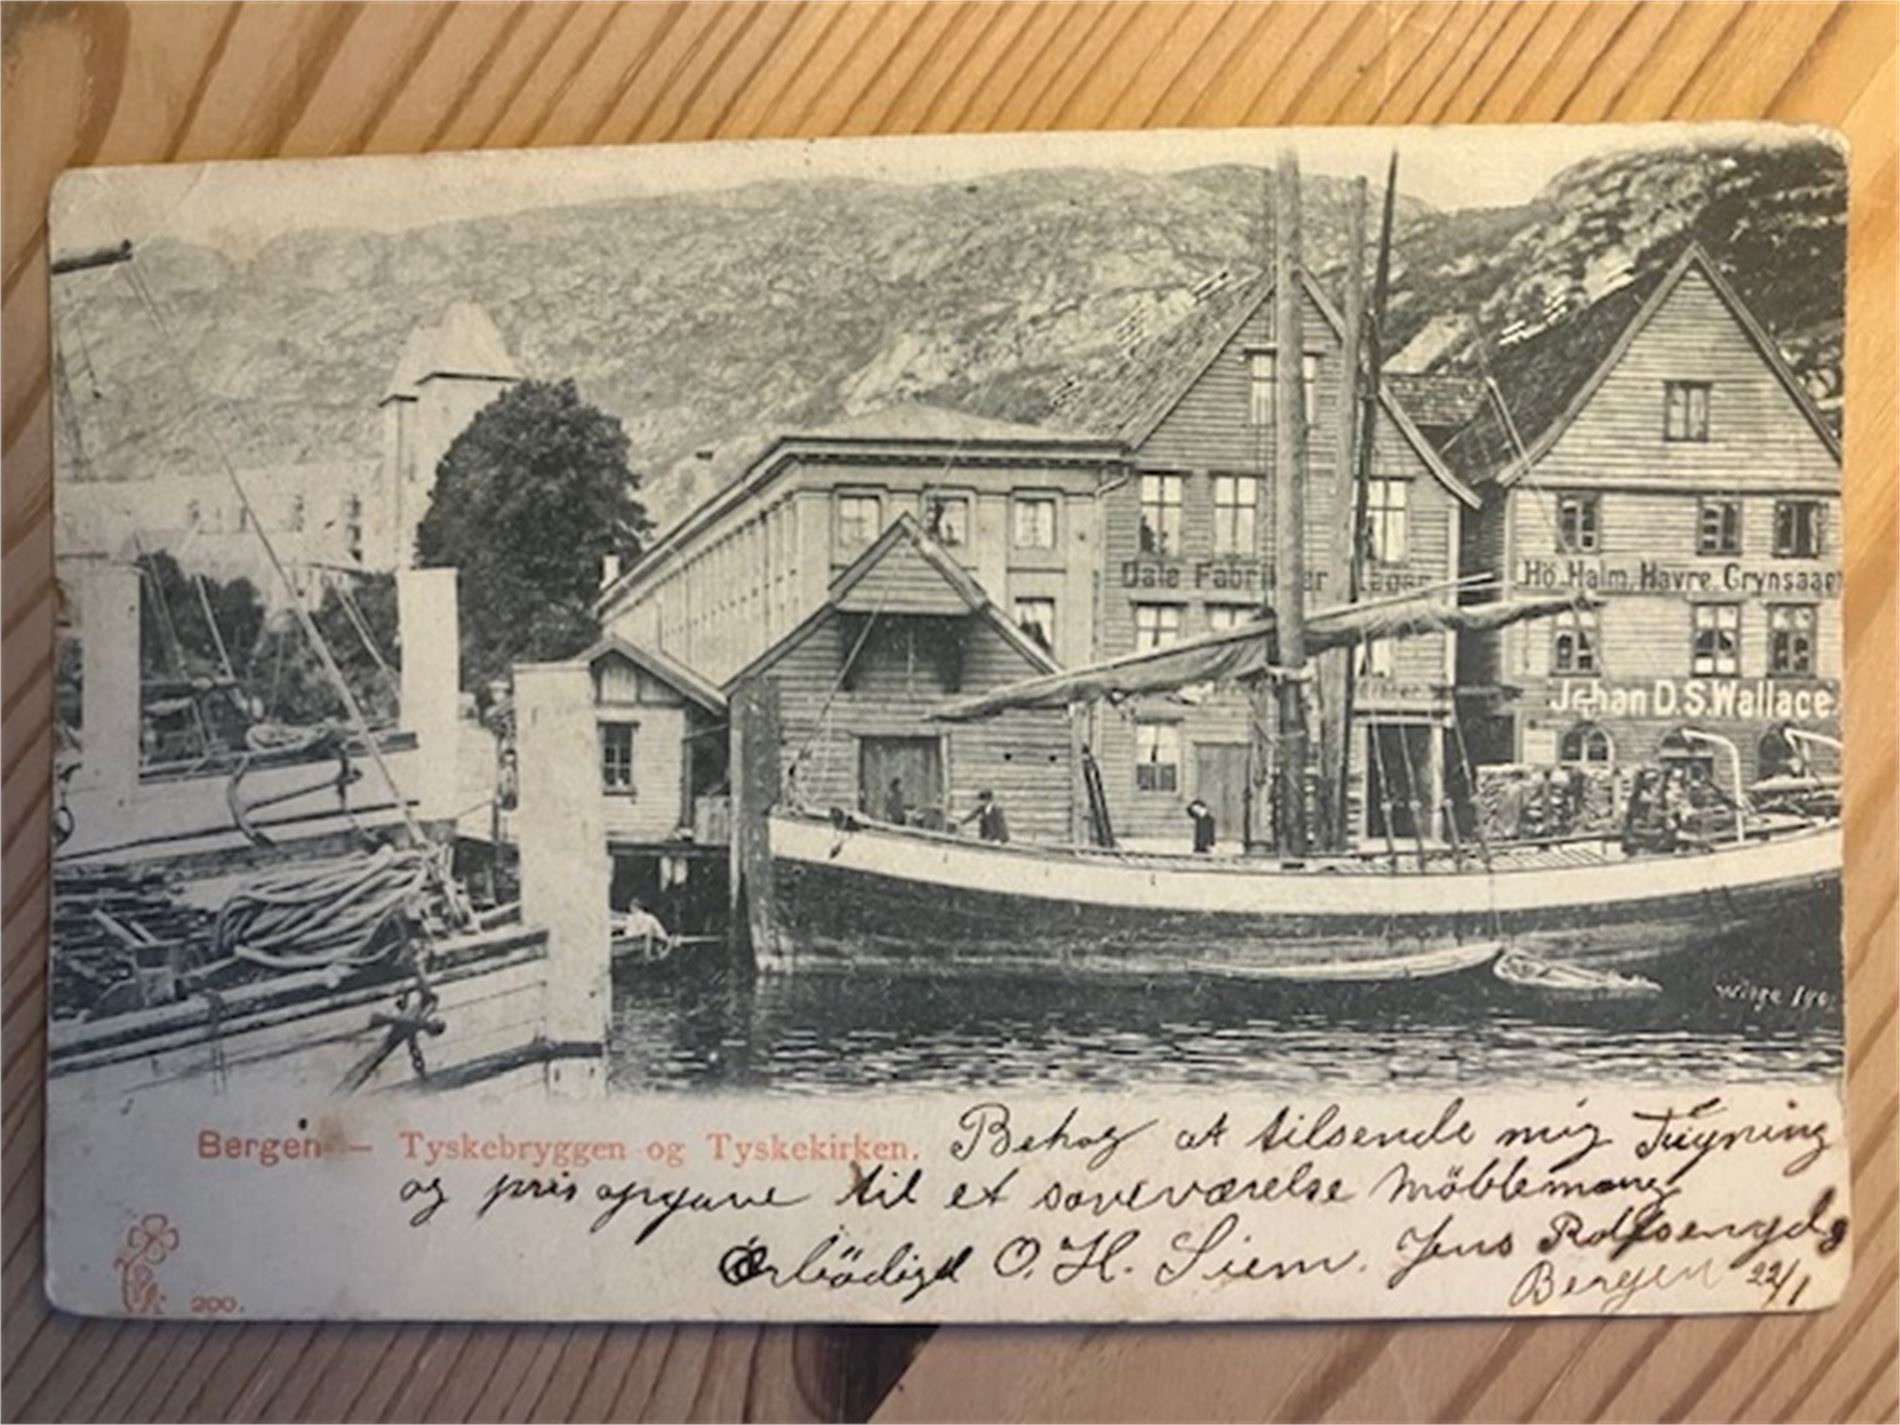 Dale Fabrikker Lager
Hø, Halm, Havre, Grynsaaer
Johan D.S. Wallace
Wilse 190
Bergen — Tyskebryggen og Tyskekirken.
Behag at tilsende mig Tegning
og pris opgave til et soveværelse Möblemang
Ærbödigst O. H. Siem. Jens Rolfsengds
Bergen 22/1
200.